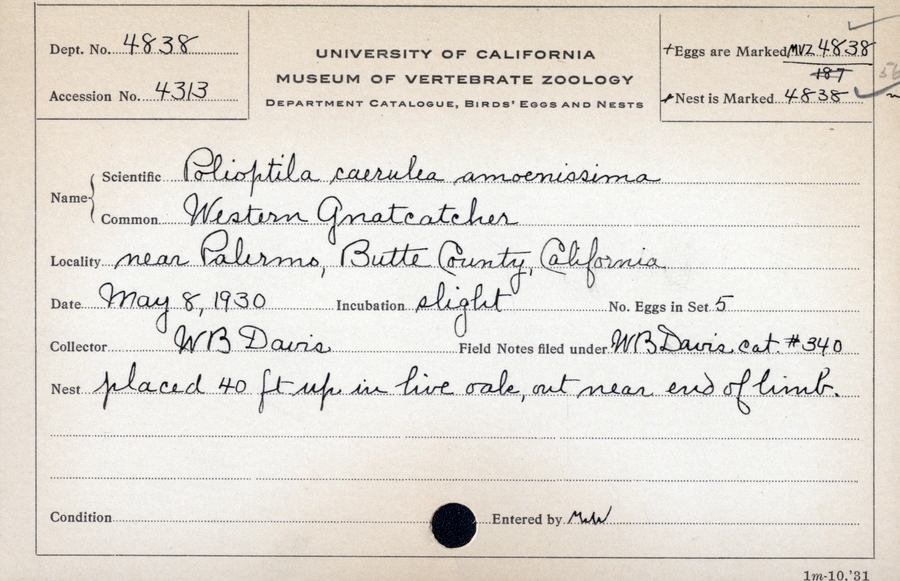 Dept. No. 4838
Accession No. 4313
UNIVERSITY OF CALIFORNIA
MUSEUM OF VERTEBRATE ZOOLOGY
DEPARTMENT CATALOGUE, BIRDS' EGGS AND NESTS
+Eggs are Marked MVZ 4838
187
+Nest is Marked 4838
Name
Scientific Polioptila caerulea amoenissima
Common Western Gnatcatcher
Locality near Palermo, Butte County, California
Date May 8, 1930 Incubation slight No. Eggs in Set 5
Collector WB Davis Field Notes filed under WB Davis cat. #340
Nest placed 40 ft up in live oak, out near end of limb.
Condition Entered by
1m-10,'31